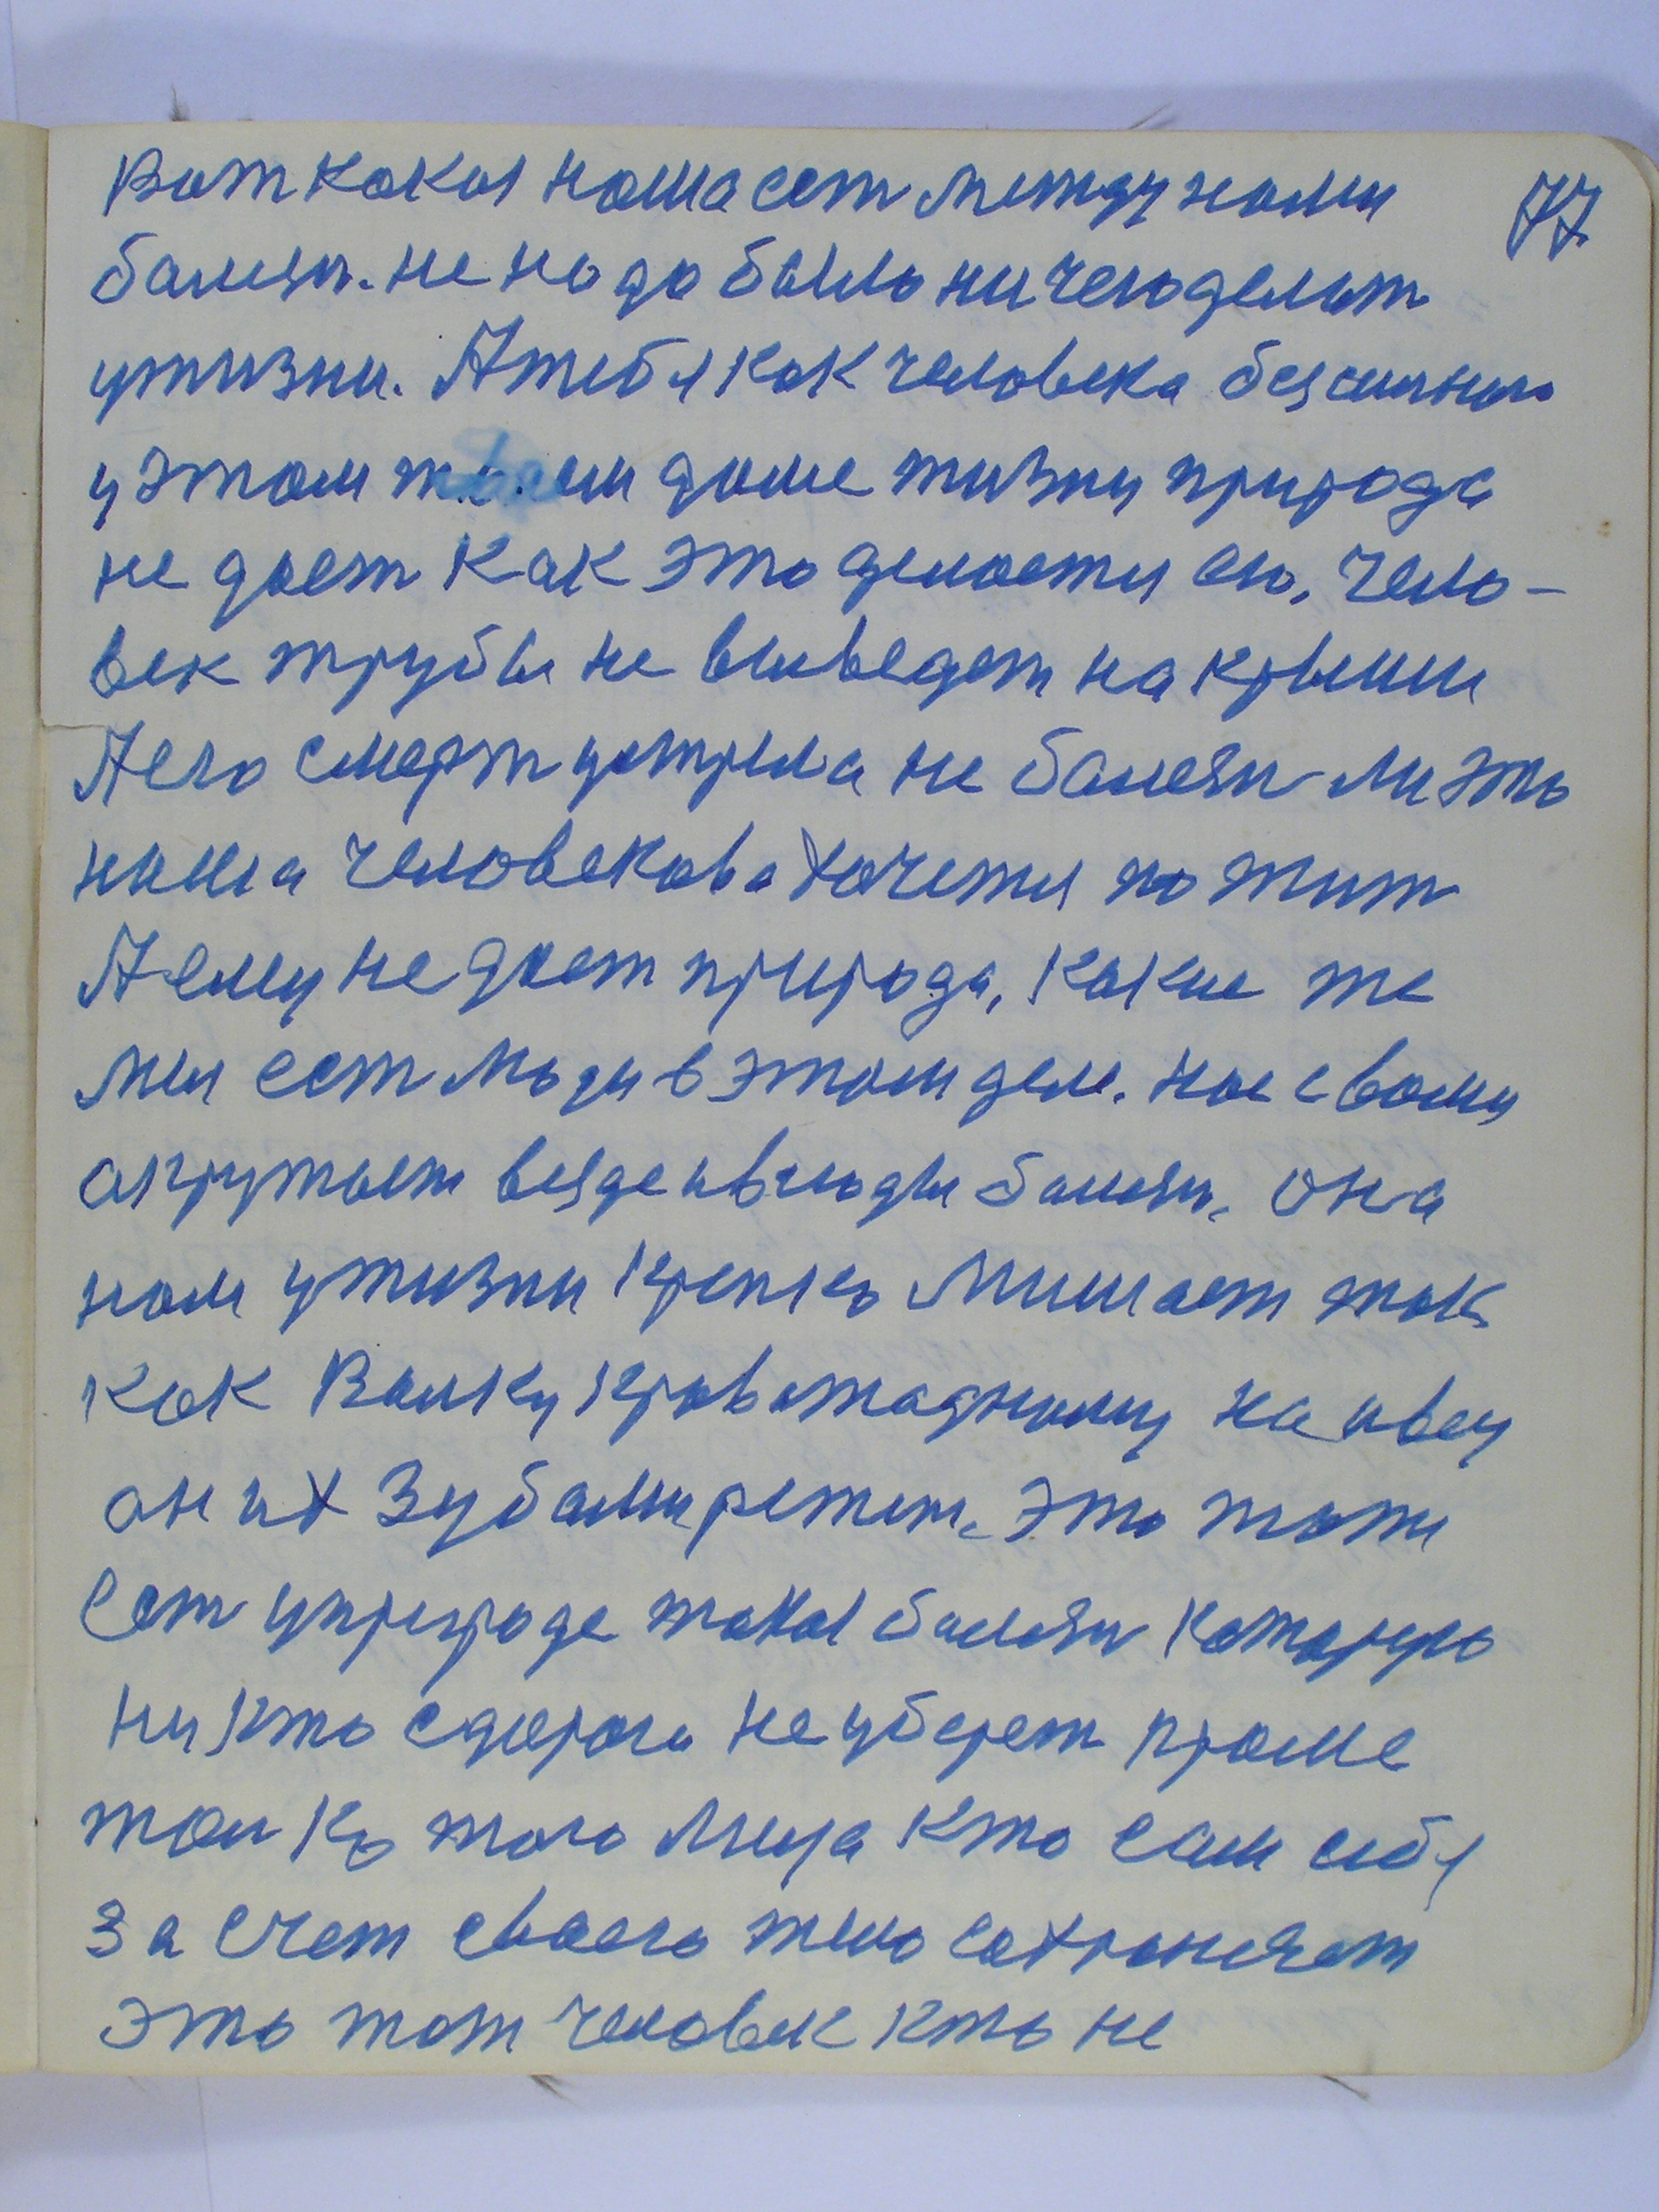 Вот какая наша ест между нами 77
балезн. не надо было ничего делат
ужизни. А тебя как человека безсильного
у этом доме жизни природа
не дает как это делается ею. Чело-
век трубы не выведет на крыши
А его смерт устрела не балезн ли это
наша человекова хочется пожит
А ему не дает природа, какие же
мы ест люди в этом деле. нас с вами
акружает везде и всюды балезн. она
нам ужизни крепко мишает так
как Валку кровожадному на авец
он их зубами режет. это тоже
ест уприроде такая балезн каторую
никто здорога не уберет кроме
толко того лица кто сам себя
за счет своего тело сохраняет
это тот человек кто не